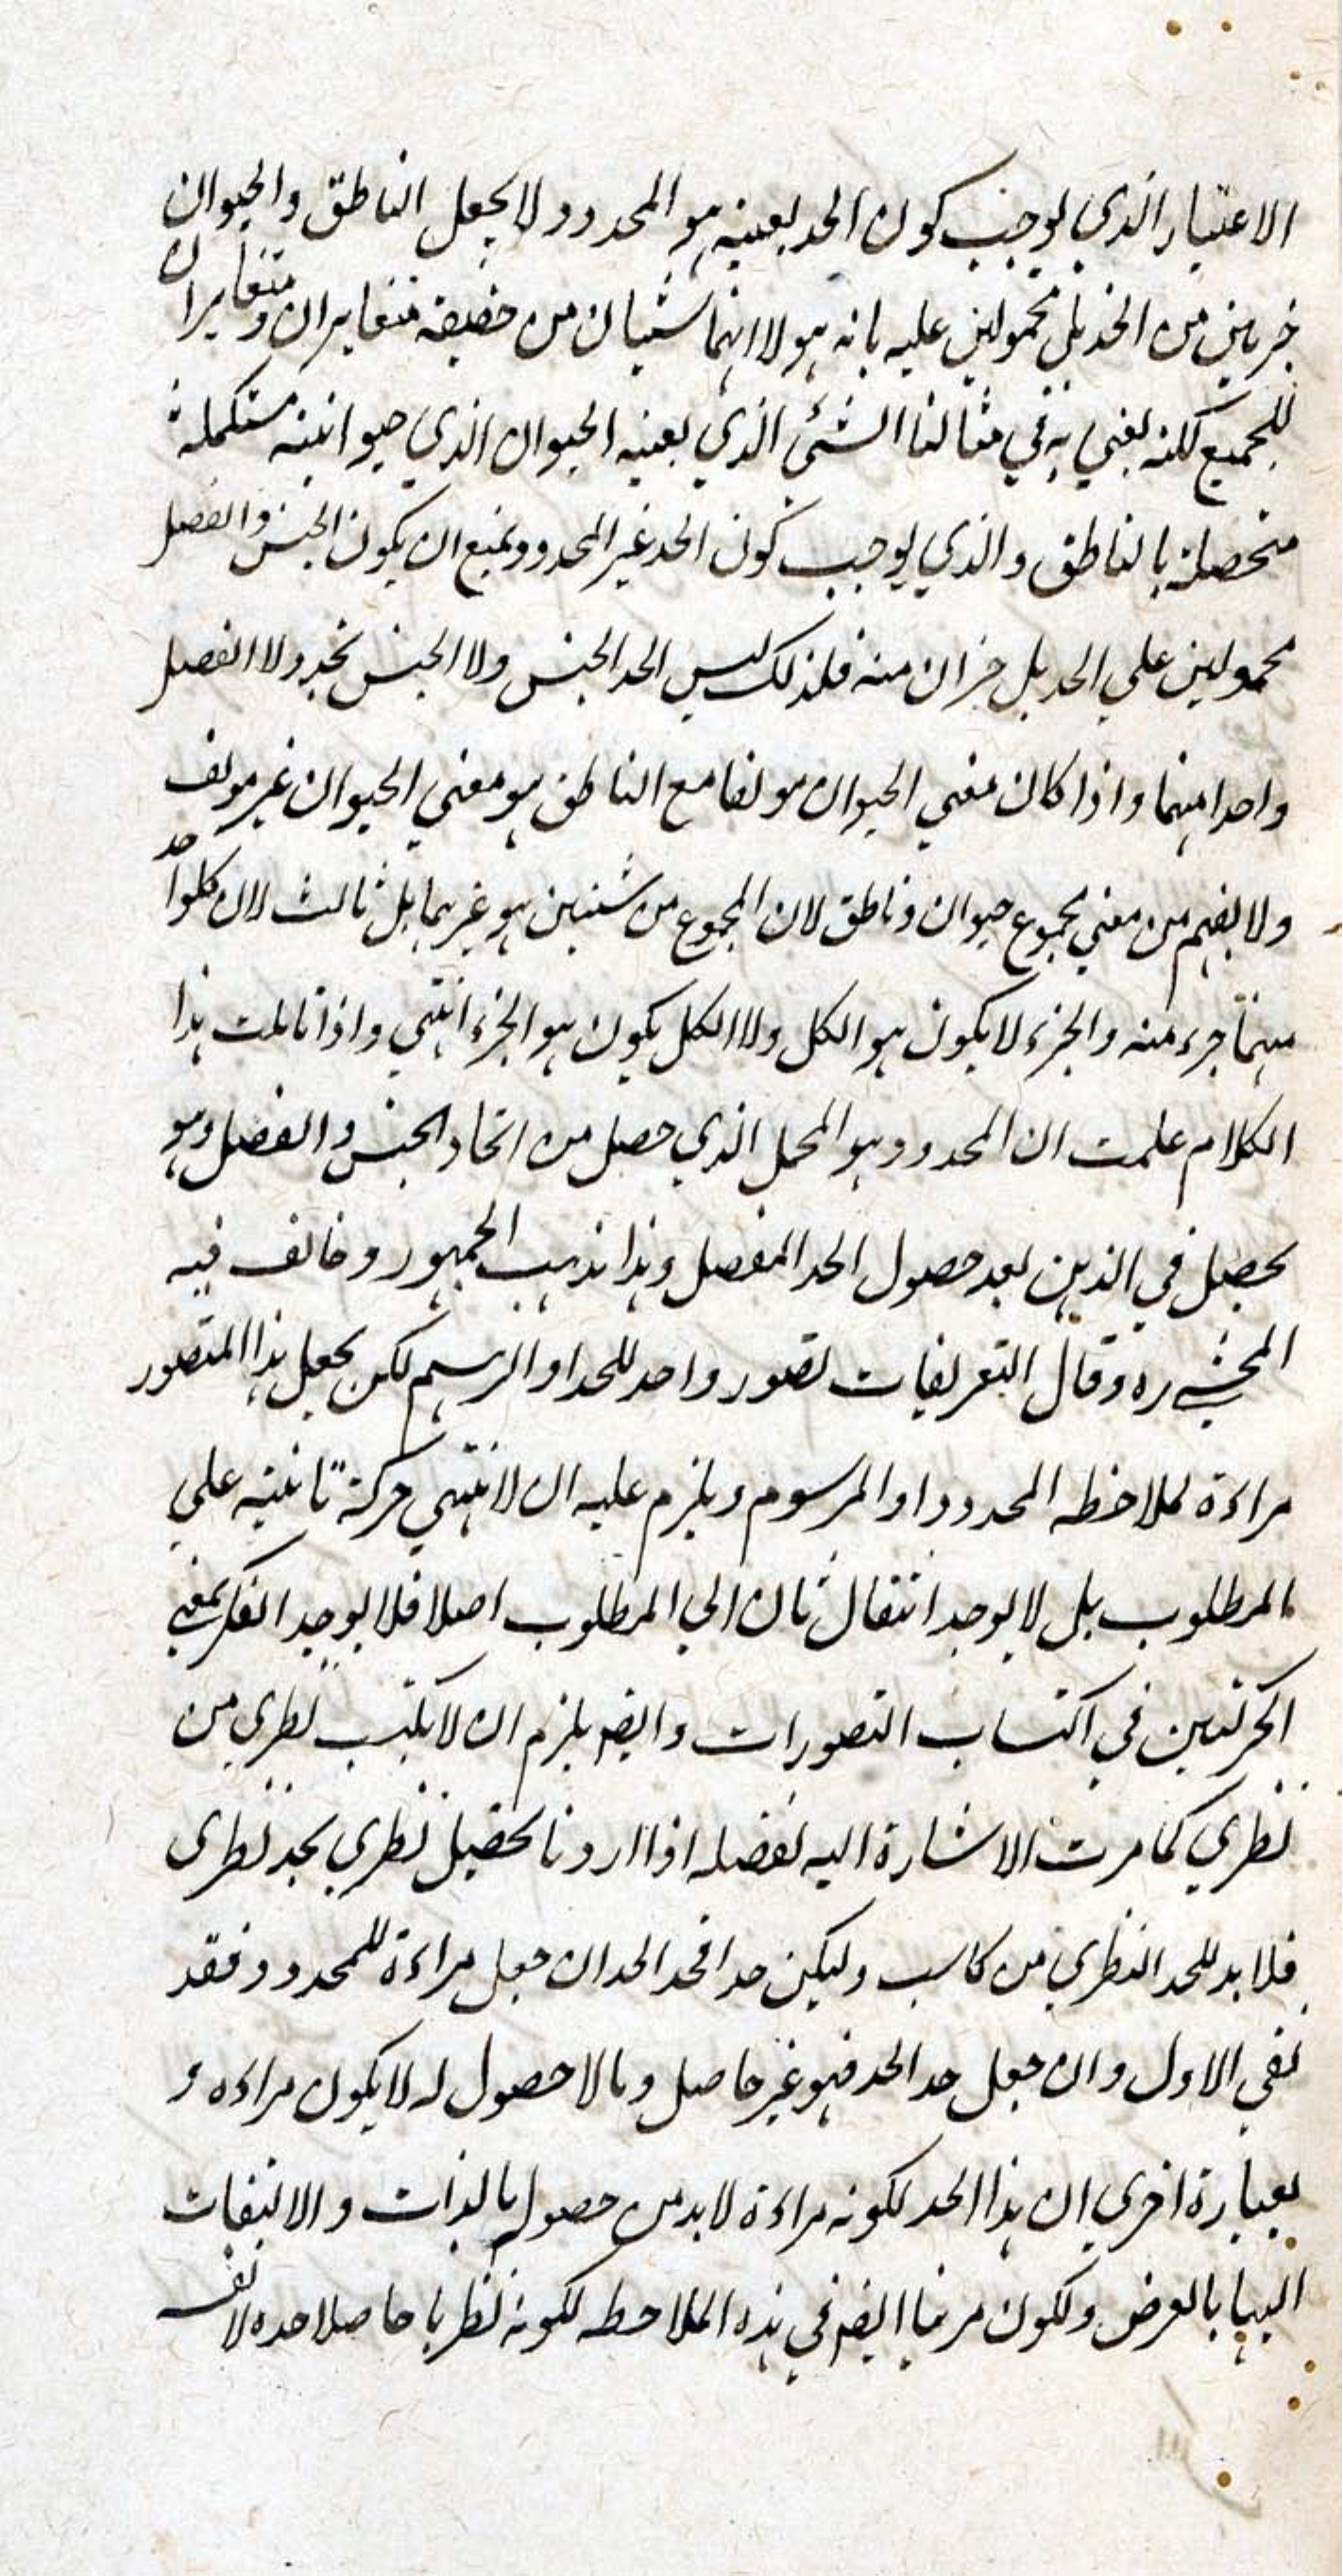 الاعتبار الذي يوجب كون الحد بعينه هو المحدود لا يجعل الناطق والحيوان
جزئين من الحد بل محمولين عليه بانه هو لا انهما شيئان من حقيقة متغايران ومتغايران
للجميع لكنه يعني به في مثالنا الشئ الذي بعينه الحيوان الذي حيوانيته مستكملة
متحصلة بالناطق والذي يوجب كون الحد غير المحدود ويمنع ان يكون الجنس والفصل
محمولين علي الحد بل جزان منه فلذلك ليس الحد الجنس ولا الجنس بحد ولا الفصل
واحدا منهما واذا كان معني الحيوان مولفا مع الناطق هو معني الحيوان غير مولف
ولا يفهم من معني مجموع حيوان وناطق لان المجموع من شيئين هو غيرهما بل ثالث لان كلواحد
منهما جزء منه والجزء لا يكون هو الكل ولا الكل يكون هو الجزء انتهي واذا تاملت هذا
الكلام علمت ان المحدود وهو المحمل الذي حصل من اتحاد الجنس والفصل وهو
يحصل في الذهن بعد حصول الحد المفصل وهذا مذهب الجمهور وخالف فيه
المحشي ره وقال التعريفات تصور واحد للحد او الرسم لكن يجعل هذا المتصور
مراءة لملاحظه المحدود او المرسوم ويلزم عليه ان لا تنتهي حركة ثانية علي
المطلوب بل لا يوجد انتقال ثان الي المطلوب اصلا فلا يوجد الفكر بمعني
الحركتين في اكتساب التصورات وايضم يلزم ان لا يكتسب نظري من
نظري كما مرت الاشارة اليه تفصيله اذا اردنا تحصيل نظري بحد نظري
فلا بد للحد النظري من كاسب وليكن حدا فحد الحد ان جعل مراءة للمحدود فقد
نفي الاول وان جعل حد الحد فهو غير حاصل وما لا حصول له لا يكون مراءه و
بعبارة اخري ان هذا الحد لكونه مراءة لا بد من حصوله بالذات والالتفات
اليها بالعرض ولكون مرئيا ايضم في هذه الملاحظه لكونه نظريا حاصلا حده لا نفسه